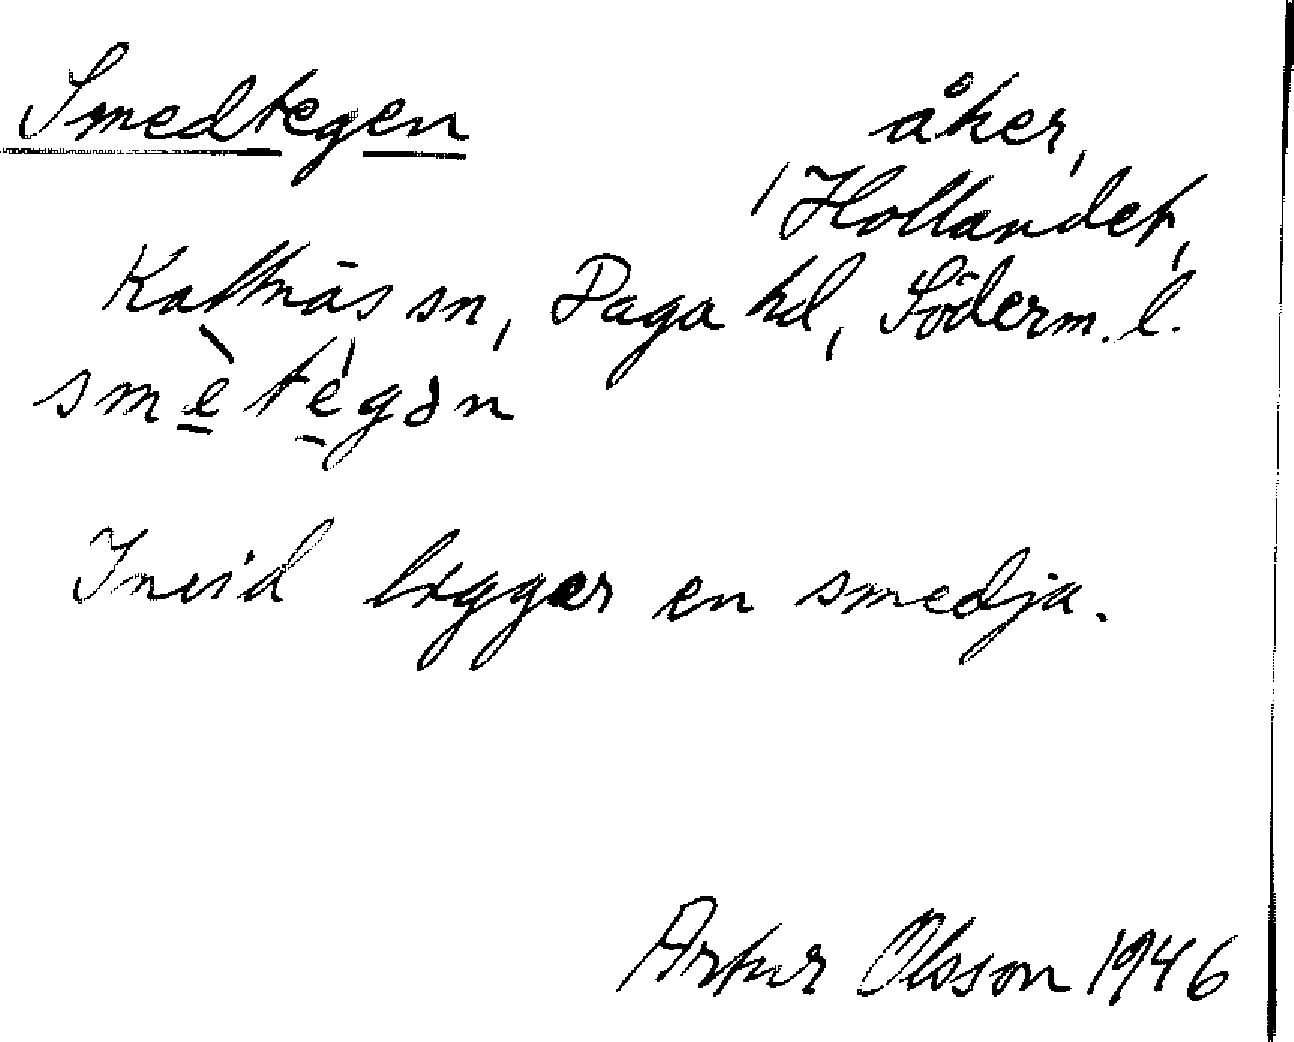 Smedtegen
åker,
Hollandet,
Kattnäs sn, Daga hd, Söderm. l.
smètégən
Invid ligger en smedja.
Artur Olsson 1946